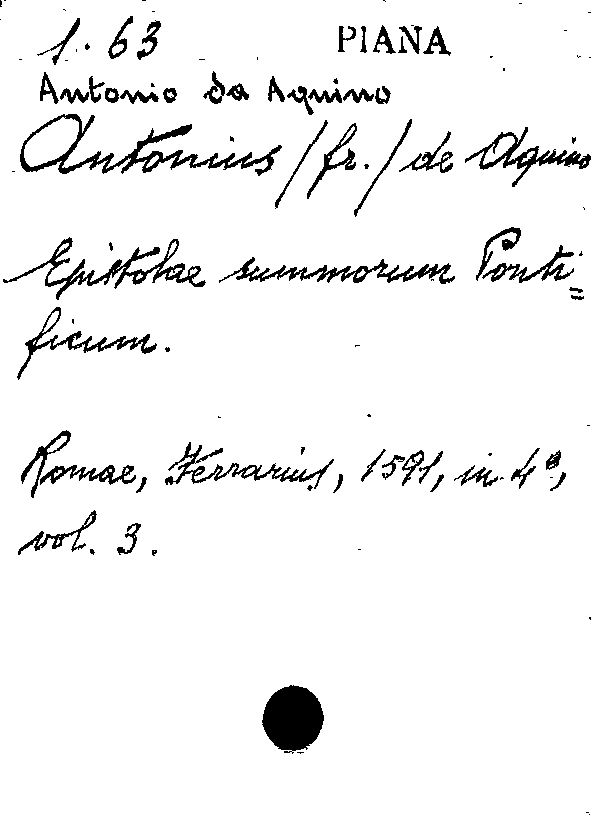 1. 63 PIANA
Antonio da Aquino
Antonius /fr./ de Aquino
Epistolae summorum Ponti=
ficum.
Romae, Ferrarius, 1591, in 4°,
vol. 3.